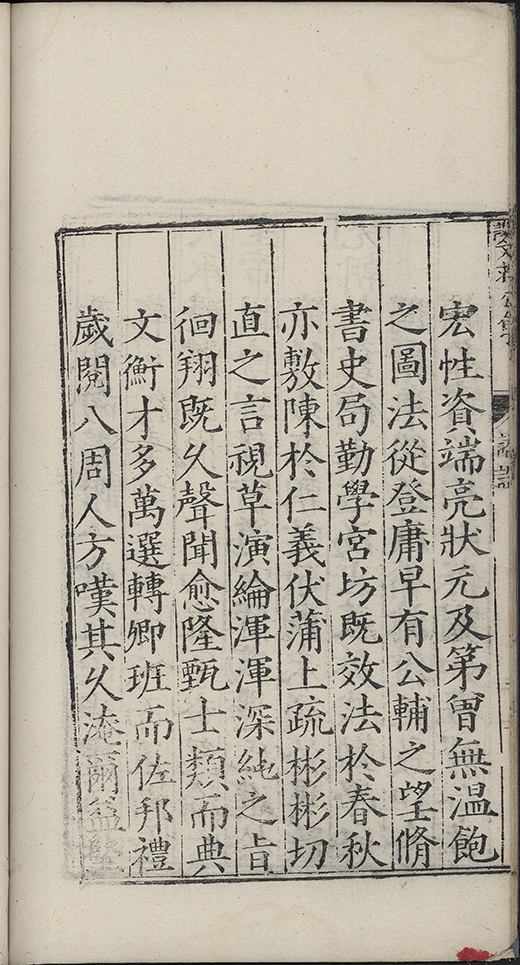 宏性資端亮狀元及第曾無溫飽
之圖法從登庸早有公輔之望脩
書史局勤學宮坊既效法於春秋
亦敷陳於仁義伏蒲上疏彬彬切
直之言視草演綸渾渾深純之旨
徊翔既久聲聞愈隆甄士類而典
文衡才多萬選轉卿班而佐邦禮
歲閱八周人方嘆其久淹爾益堅